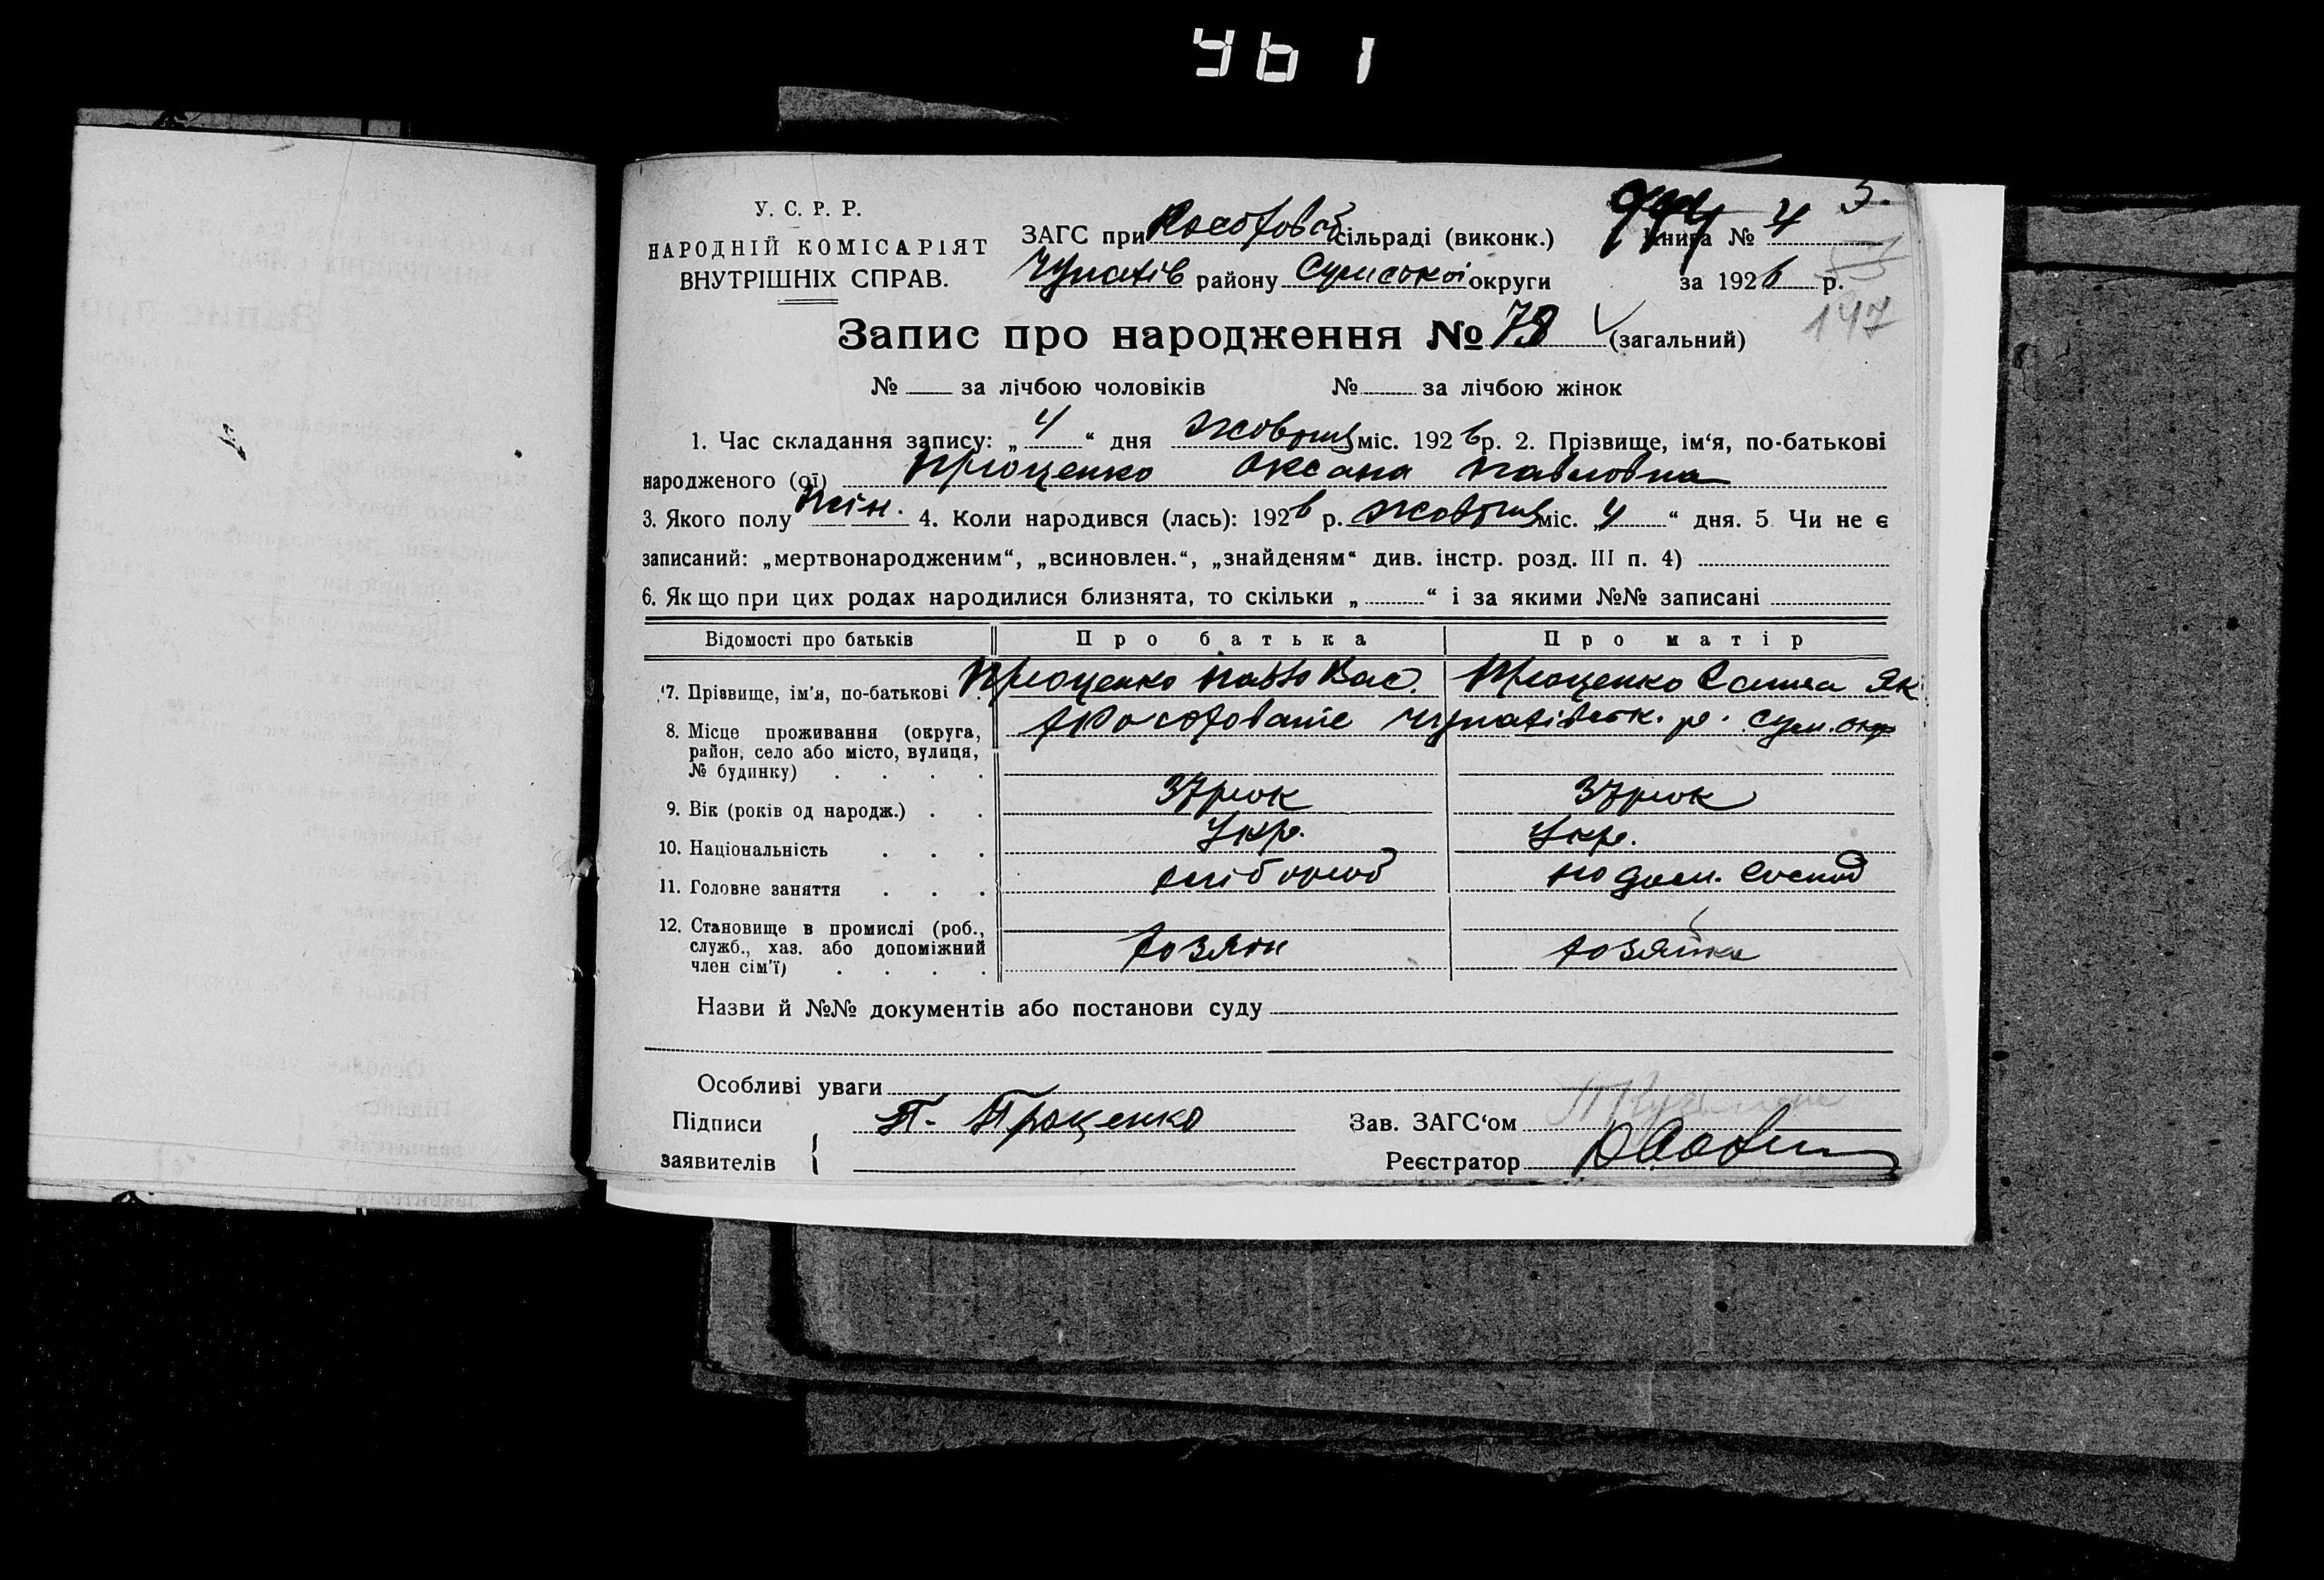 461
У. С. Р. Р.
НАРОДНІЙ КОМІСАРІЯТ
ВНУТРІШНІХ СПРАВ.
ЗАГС при сільраді (виконк.)
району Сумської округи
Книга № 4
за 1926 р.
147
Запис про народження № 78 (загальний)
№ за лічбою чоловіків № за лічбою жінок
1. Час складання запису: „ 4 “ дня жовтня міс. 1926 р. 2. Прізвище, ім‘я, по-батькові
народженого (ої) Проценко Оксана Павловна
3. Якого полу жін. 4. Коли народився (лась): 1926 р. жовтня міс. „ 4 “ дня. 5 Чи не є
записаний: „мертвонародженим“, „всиновлен.“, „знайденям“ див. інстр. розд. III п. 4)
6. Якщо при цих родах народилися близнята, то скільки „ “ і за якими №№ записані
Відомості про батьків Про батька Про матір
7. Прізвище, ім'я, по-батькові Проценко Павло Вас. Проценко Як
8. Місце проживання (округа, район, село або місто, вулиця, № будинку) р. Сум. окр
9. Вік (років од народж.) 37 рок 37 рок
10. Національність Укр. Укр.
11. Головне заняття хлібороб по дом. господ
12. Становище в промислі (роб., служб., хаз. або допоміжний член сім'ї) хозяін хозяйка
Назви й №№ документів або постанови суду
Особливі уваги
Підписи заявителів П. Проценко
Зав. ЗАГС‘ом
Реєстратор